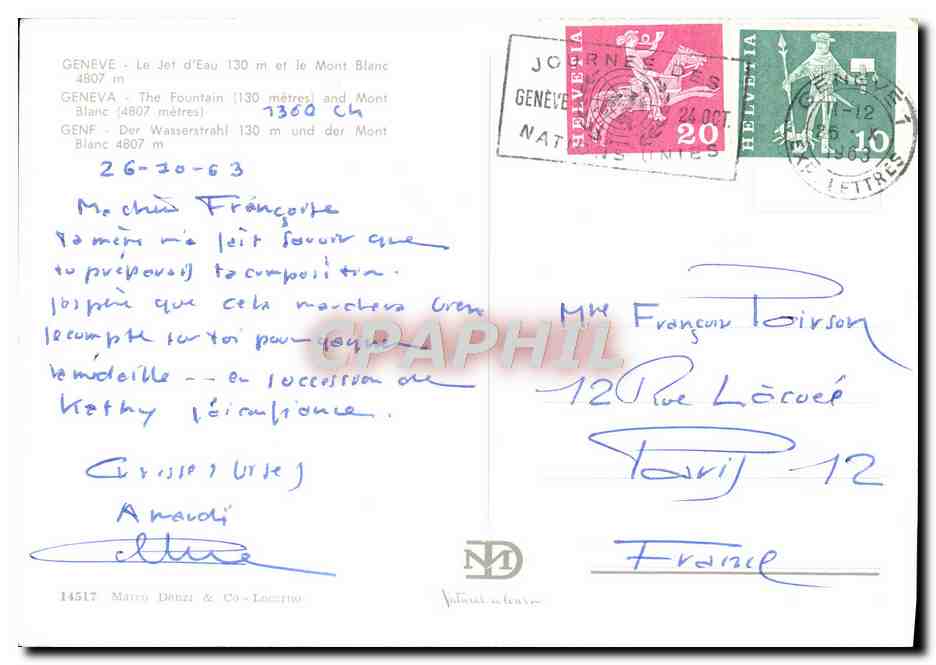 GENÈVE - Le Jet d'Eau 130 m et le Mont Blanc
4807 m
GENEVA - The Fountain (130 mètres) and Mont
Blanc (4807 mètres)
1360 Ch
GENF - Der Wasserstrahl 130 m und der Mont
Blanc 4807 m
26-10-63
Ma chère Françoise
ta mère m'a fait savoir que
tu préparais ta composition.
j'espère que cela marchera bien
je compte sur toi pour gagner
la médaille -- en succession de
Kathy j'ai confiance.
Grosses bises
A mardi
14517 Marco Danzi & Co - Locarno
MD
HELVETIA
20
HELVETIA
10
JOURNÉE DES
GENÈVE 24 OCT.
NATIONS UNIES
GENÈVE 1
11-12
26 X
1963
EXP. LETTRES
Mlle Françoise Poirson
12 Rue Lacuée
Paris 12
France
CPAPHIL